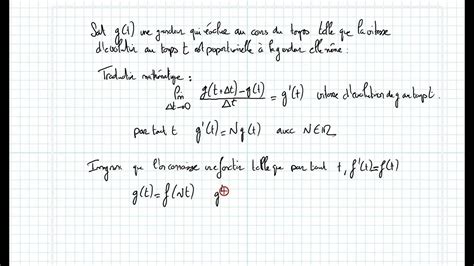 Soit g(t) une grandeur qui évolue au cours du temps telle que la vitesse
d'évolution au temps t est proportionnelle à la grandeur elle-même :
Traduction mathématique :
lim Δt→0 (g(t+Δt)-g(t))/Δt = g'(t) vitesse d'évolution de g au temps t.
pour tout t g'(t) = N g(t) avec N∈ℝ
Imaginons que l'on connaisse une fonction telle que pour tout t, f'(t)=f(t)
g(t) = f(Nt) g